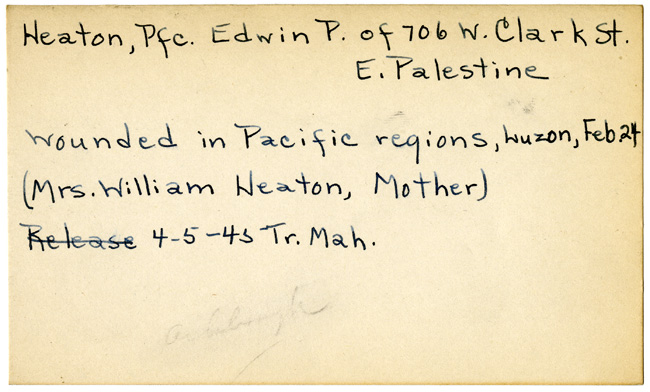 Heaton, Pfc. Edwin P. of 706 W. Clark St.
E. Palestine
Wounded in Pacific regions, Luzon, Feb 24
(Mrs. William Heaton, Mother)
Release 4-5-45 Tr. Mah.